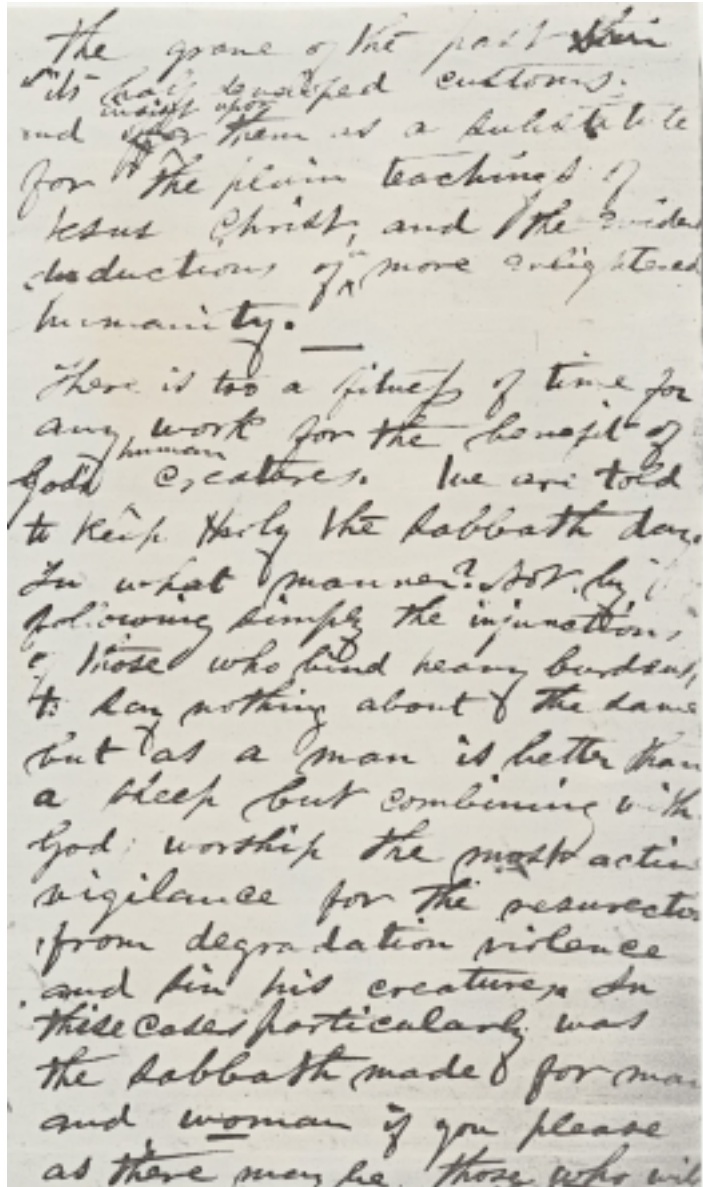 the grave of the past
its half developed customs.
insist upon
and offer them as a substitute
for the plain teachings of
Jesus Christ, and the eviden
deductions of more enlightened
humanity.
There is too a fitness of time for
any work for the benefit of
human
God's creatures. We are told
to keep Holy the Sabbath day.
In what manner? Not by
following simply the injunctions
of those who bind heavy burdens,
to say nothing about the same
but as a man is better than
a sheep but combining with
God worship the most activ
vigilance for the resurectio
from degradation violence
and sin his creatures. In
these cases particularly was
the Sabbath made for man
and woman if you please
as there may be those who will